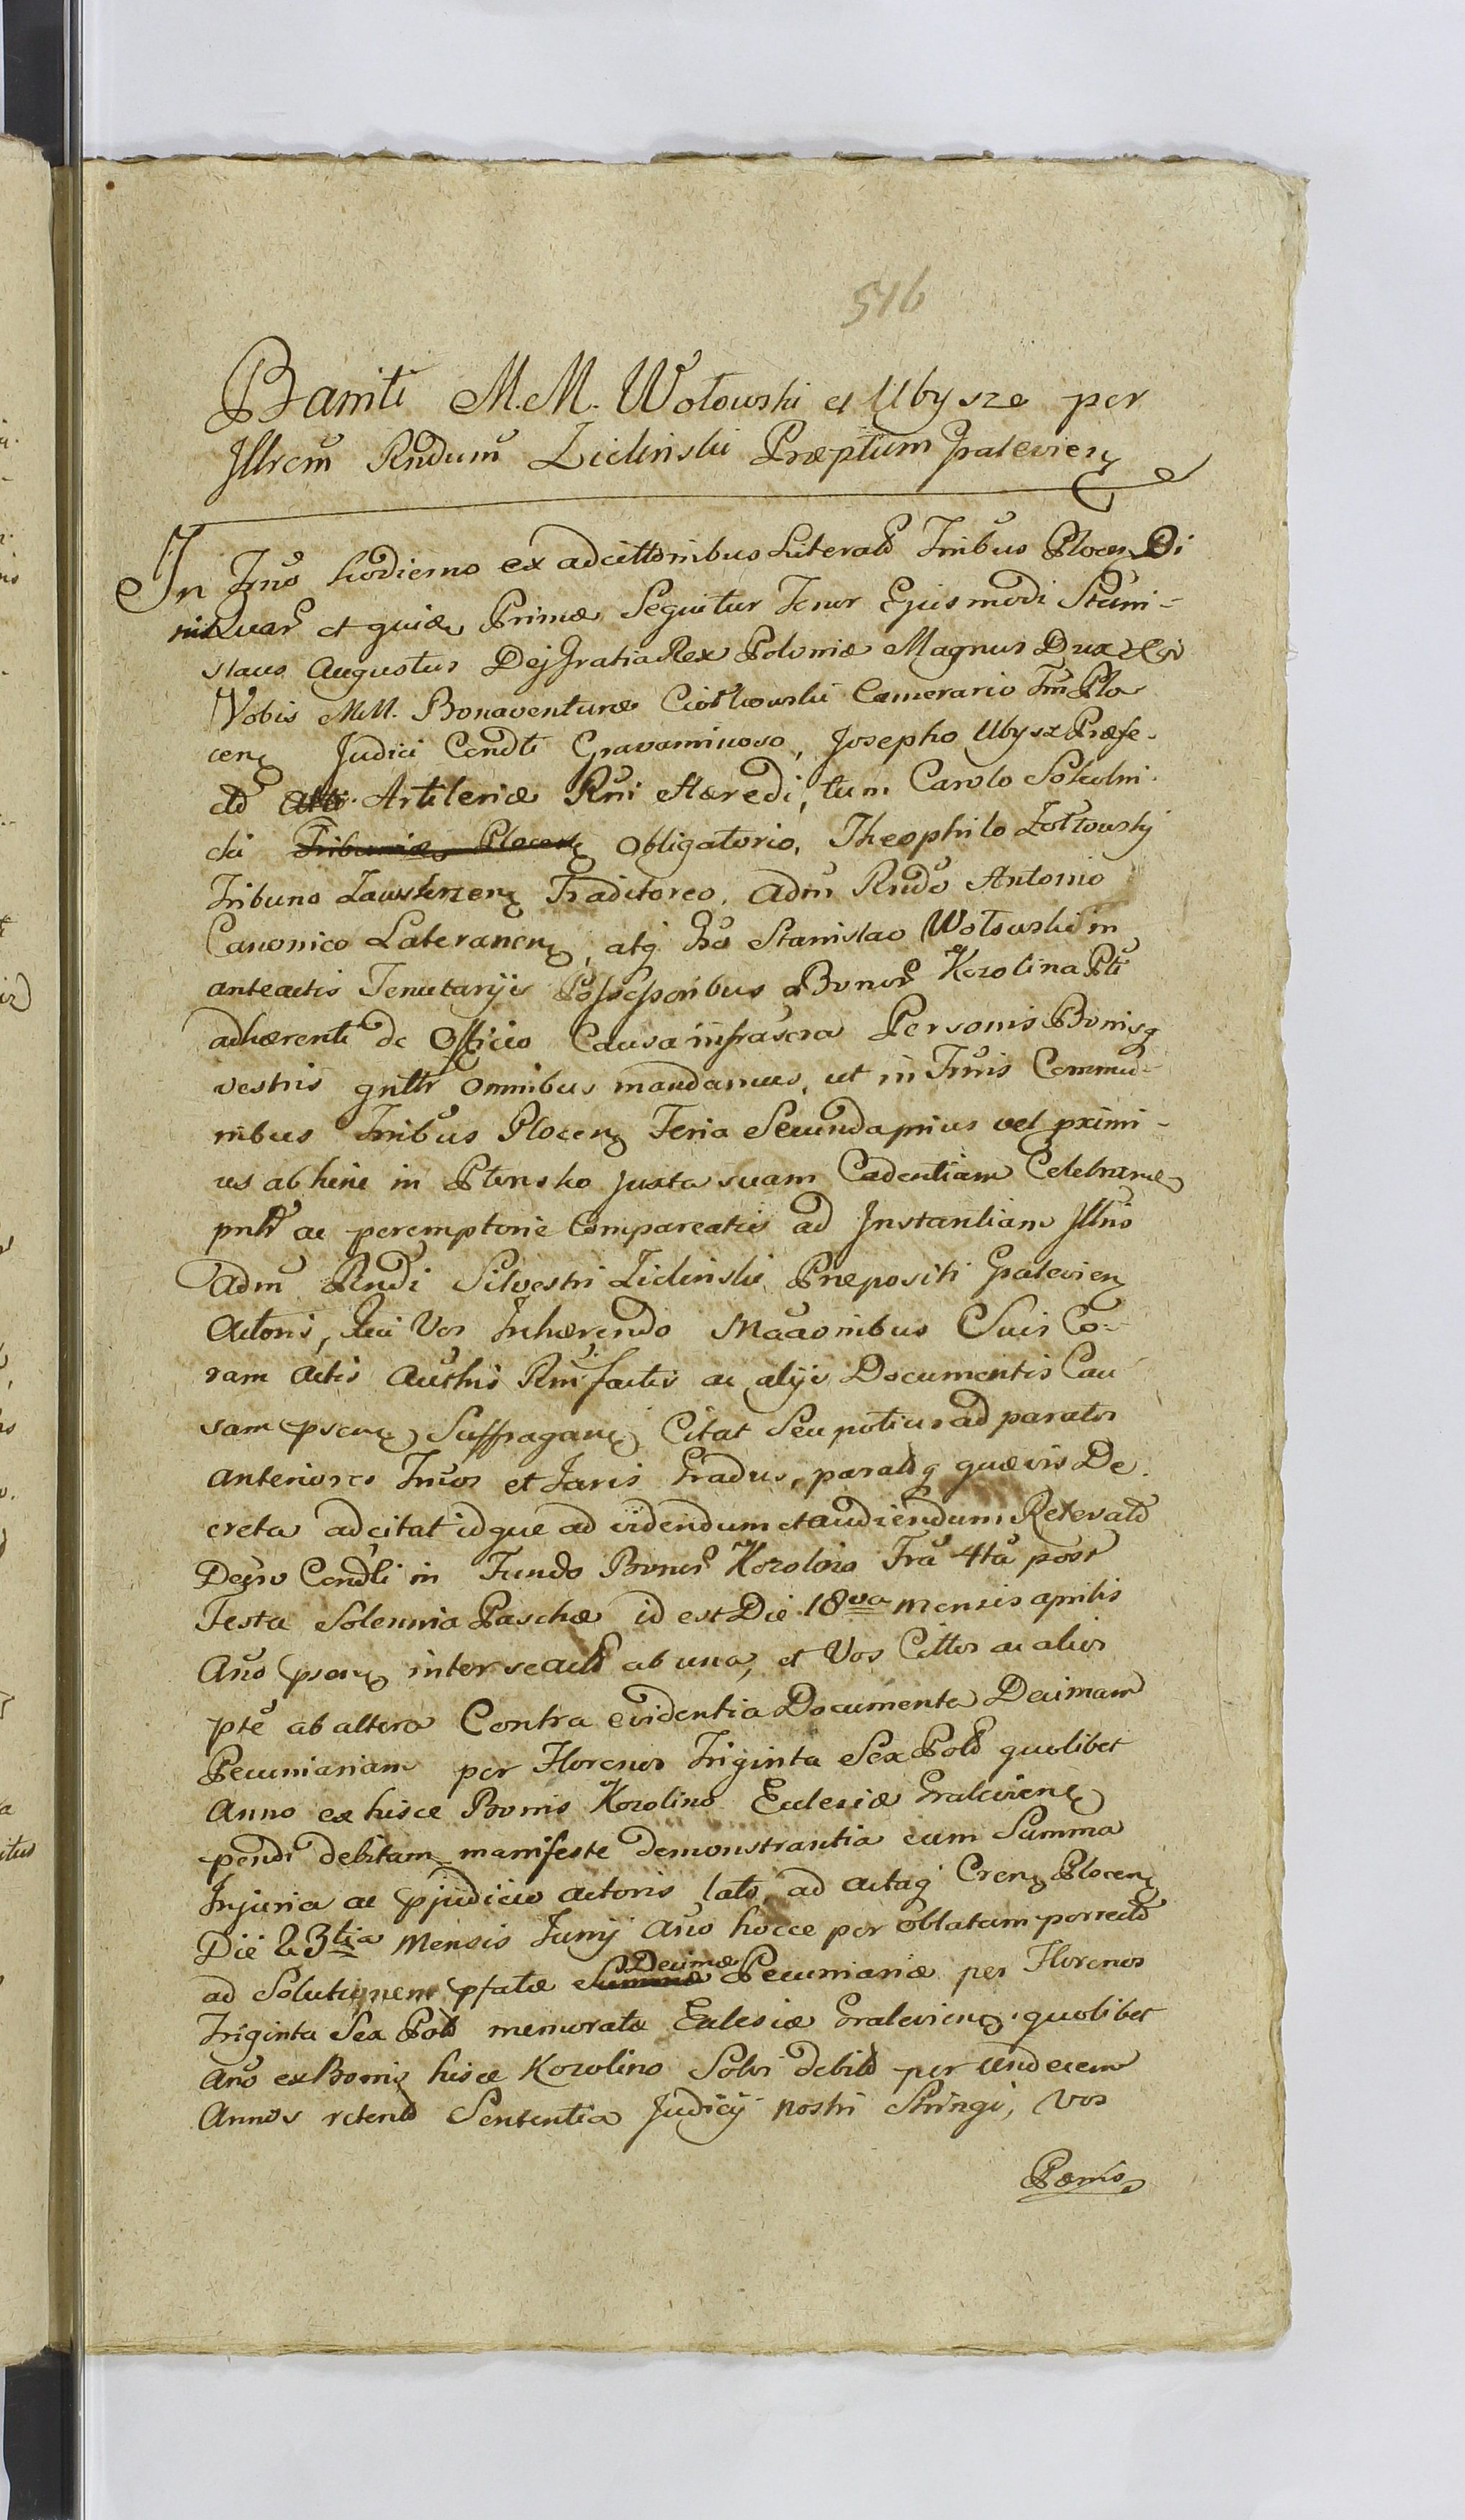 516
Baniti M.M. Wołowski et Ubysze per
Illrem Rndum Zieliński Præptum Gralevien
In Trno hodierno ex adcittõnibus Literald Tribus Plocen Di
nis Quar et quiæ Primæ Sequitur Tenor Ejusmodi Stani-
slaus Augustus Dej Gratia Rex Poloniæ Magnus Dux
Vobis M.M. Bonaventuræ Ciółkowski Camerario Trn Plo
cen Judici Condti Gravaminoso, Josepho Ubysz Præfe-
cto Artileriæ Rni Hæredi, tum Carolo Sokolni-
cki Tribunide Plocen Obligatorio, Theophilo Zółtowsky
Tribuno Zawskrzen Traditoreo, Adm Rndo Antonio
Canonico Lateranen, atq Gso Stanislao Wołowski in
anteactis Tenutarijs Possessoribus Bonor Kozolina Pti
adhærenti de Officio Causa infrascra Personis Bonisq
vestris gnltr omnibus mandamus, ut in Trnis Commu-
nibus Tribus Plocen Feria Secunda prius vel primi-
us abhinc in Płonsko juxta suam Cadentiam Celebran
pnltr ac peremptorie Compareatis ad Instantiam Illris
Adm Rndi Silvestri Zieliński Præpositi Gralevien
Actoris, Qui Vos Inhærendo Maõnibus Suis Co-
ram Actis Authis Rni factis ac alijs Documentis Cau
sam psen Suffragan Citat Seu potius ad paratos
anteriores Trnos et Juris Gradus, parataq quævis De-
creta adcitat idque ad videndum et audiendum Relevatd
Decso Condti in Fundo Bonor Kozolino Fra 4ta post
Festa Solennia Paschæ id est Die 18va mensis aprilis
Ano psen inter se actd ab una, et Vos Cittos ac alios
pte ab altera Contra evidentia Documenta Decimam
Pecuniariam per Florenos Triginta Sex Pold quolibet
Anno ex hisce Bonis Kozolino Ecclesiæ Gralevien
pendi debitam manifeste demonstrantia cum Summa
Injuria ac pjudicio Actoris lato, ad actaq Cren Plocen
Die 23tia Mensis Junij Ano hocce per oblatam porrectd
ad Solutionem pfatæ Summæ Decimæ Pecuniariæ per Florenos
Triginta Sex Pold memoratæ Eclesiæ Gralevien quolibet
Ano ex Bonis hisce Kozolino Solvi debitd per undecem
Annos retentd Sententia Judicij nostri Stringi, Vos
Pœnis